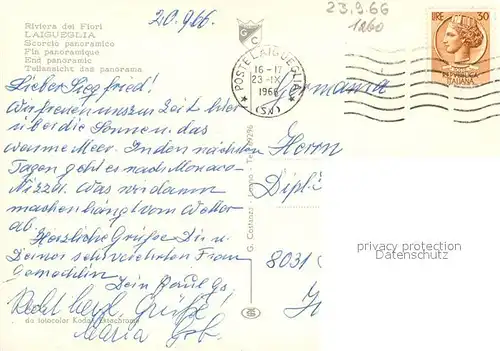 23.9.66
1260
20.9.66.
Riviera dei Fiori
LAIGUEGLIA
Scorcio panoramico
Fin panoramique
End panoramic
Teilansicht das panorama
G C
POSTE LAIGUEGLIA
16-17
23-IX
1966
(SV)
LIRE 50
REPVBBLICA
ITALIANA
Germania
Lieber Siegfried!
Wir freuen uns zur Zeit hier
über die Sonne u. das
warme Meer. In den nächsten
Tagen geht es nach Monaco-
Nizza. Was wir dann
machen hängt vom Wetter
ab.
Herzliche Grüße Dir u.
Deiner
Frau
Gemahlin
Dein
Herrn
Dipl.
8031
G. Costanzo
Recht herzl. Grüße
Maria
da fotocolor Kodak Ektachrome
privacy protection
Datenschutz